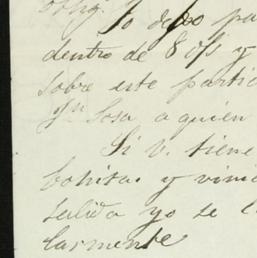 Yo dejo pa
dentro de 8 ds y
sobre este partic
Sosa a quien
Si v. tiene
bonitas y vini
salida yo se l
larmente